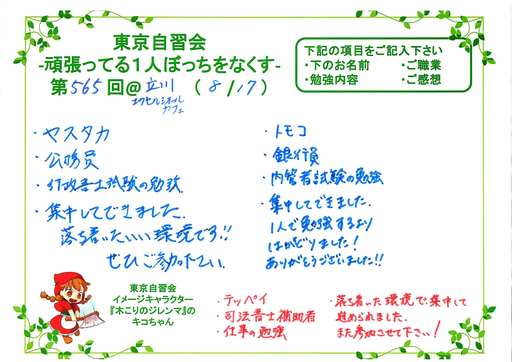 東京自習会
-頑張ってる1人ぼっちをなくす-
第565回@立川 (8/17)
エクセルシオール
カフェ
下記の項目をご記入下さい
・下のお名前 ・ご職業
・勉強内容 ・ご感想
・ヤスタカ
・公務員
・行政書士試験の勉強
・集中してできました。
落ち着いたいい環境です!!
ぜひご参加下さい。
・トモコ
・銀行員
・内管者試験の勉強
・集中してできました。
1人で勉強するより
はかどりました!
ありがとうございました!!
東京自習会
イメージキャラクター
『木こりのジレンマ』の
キコちゃん
・テッペイ
・司法書士補助者
・仕事の勉強
・落ち着いた環境で集中して
進められました。
また参加させて下さい!